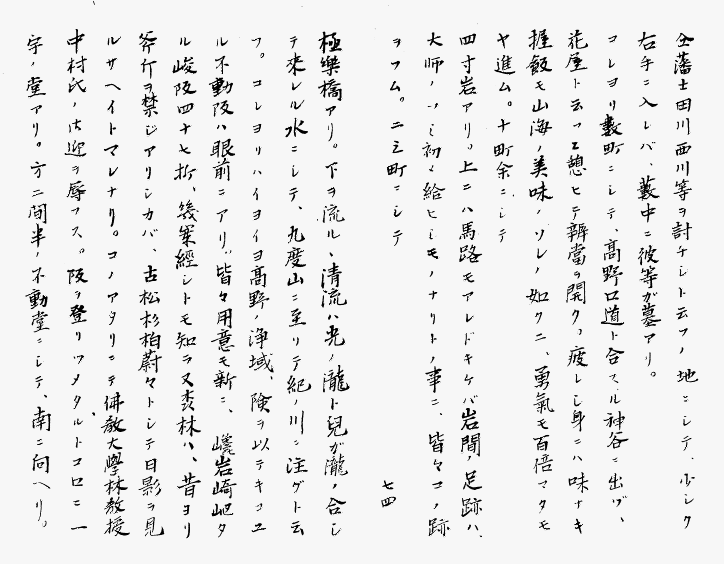 仝藩士田川西川等ヲ討チシト云フノ地ニシテ、少シク
右手ニ入レバ、藪中ニ彼等ガ墓アリ。
コレヨリ數町ニシテ、高野口道ト合スル神谷ニ出デ、
花屋ト云フニ憩ヒテ辨當ヲ開ク。疲レシ身ニハ味ナキ
握飯モ山海ノ美味ノソレノ如クニ、勇氣モ百倍マタモ
ヤ進ム。十町余ニシテ
四寸岩アリ。上ニハ馬路モアレドキケバ岩間ノ足跡ハ、
大師ノフミ初メ給ヒシモノナリトノ事ニ、皆々コノ跡
ヲフム。二三町ニシテ
七四
極樂橋アリ。下ヲ流ルヽ清流ハ光ノ瀧ト兒ガ瀧ノ合シ
テ來レル水ニシテ、九度山ニ至リテ紀ノ川ニ注グト云
フ。コレヨリハイヨイヨ高野ノ浄域、険ヲ以テキコユ
ル不動阪ハ眼前ニアリ。皆々用意モ新ニ、巉岩崎嶇タ
ル峻阪四十七折、幾寒經シトモ知ラヌ森林ハ、昔ヨリ
斧斤ヲ禁ジアリシカバ、古松杉柏蔚々トシテ日影ヲ見
ルサヘイトマレナリ。コノアタリニテ佛教大學林教授
中村氏ノ出迎ヲ辱フス。阪ヲ登リツメタルトコロニ一
宇ノ堂アリ。方二間半ノ不動堂ニシテ、南ニ向ヘリ。